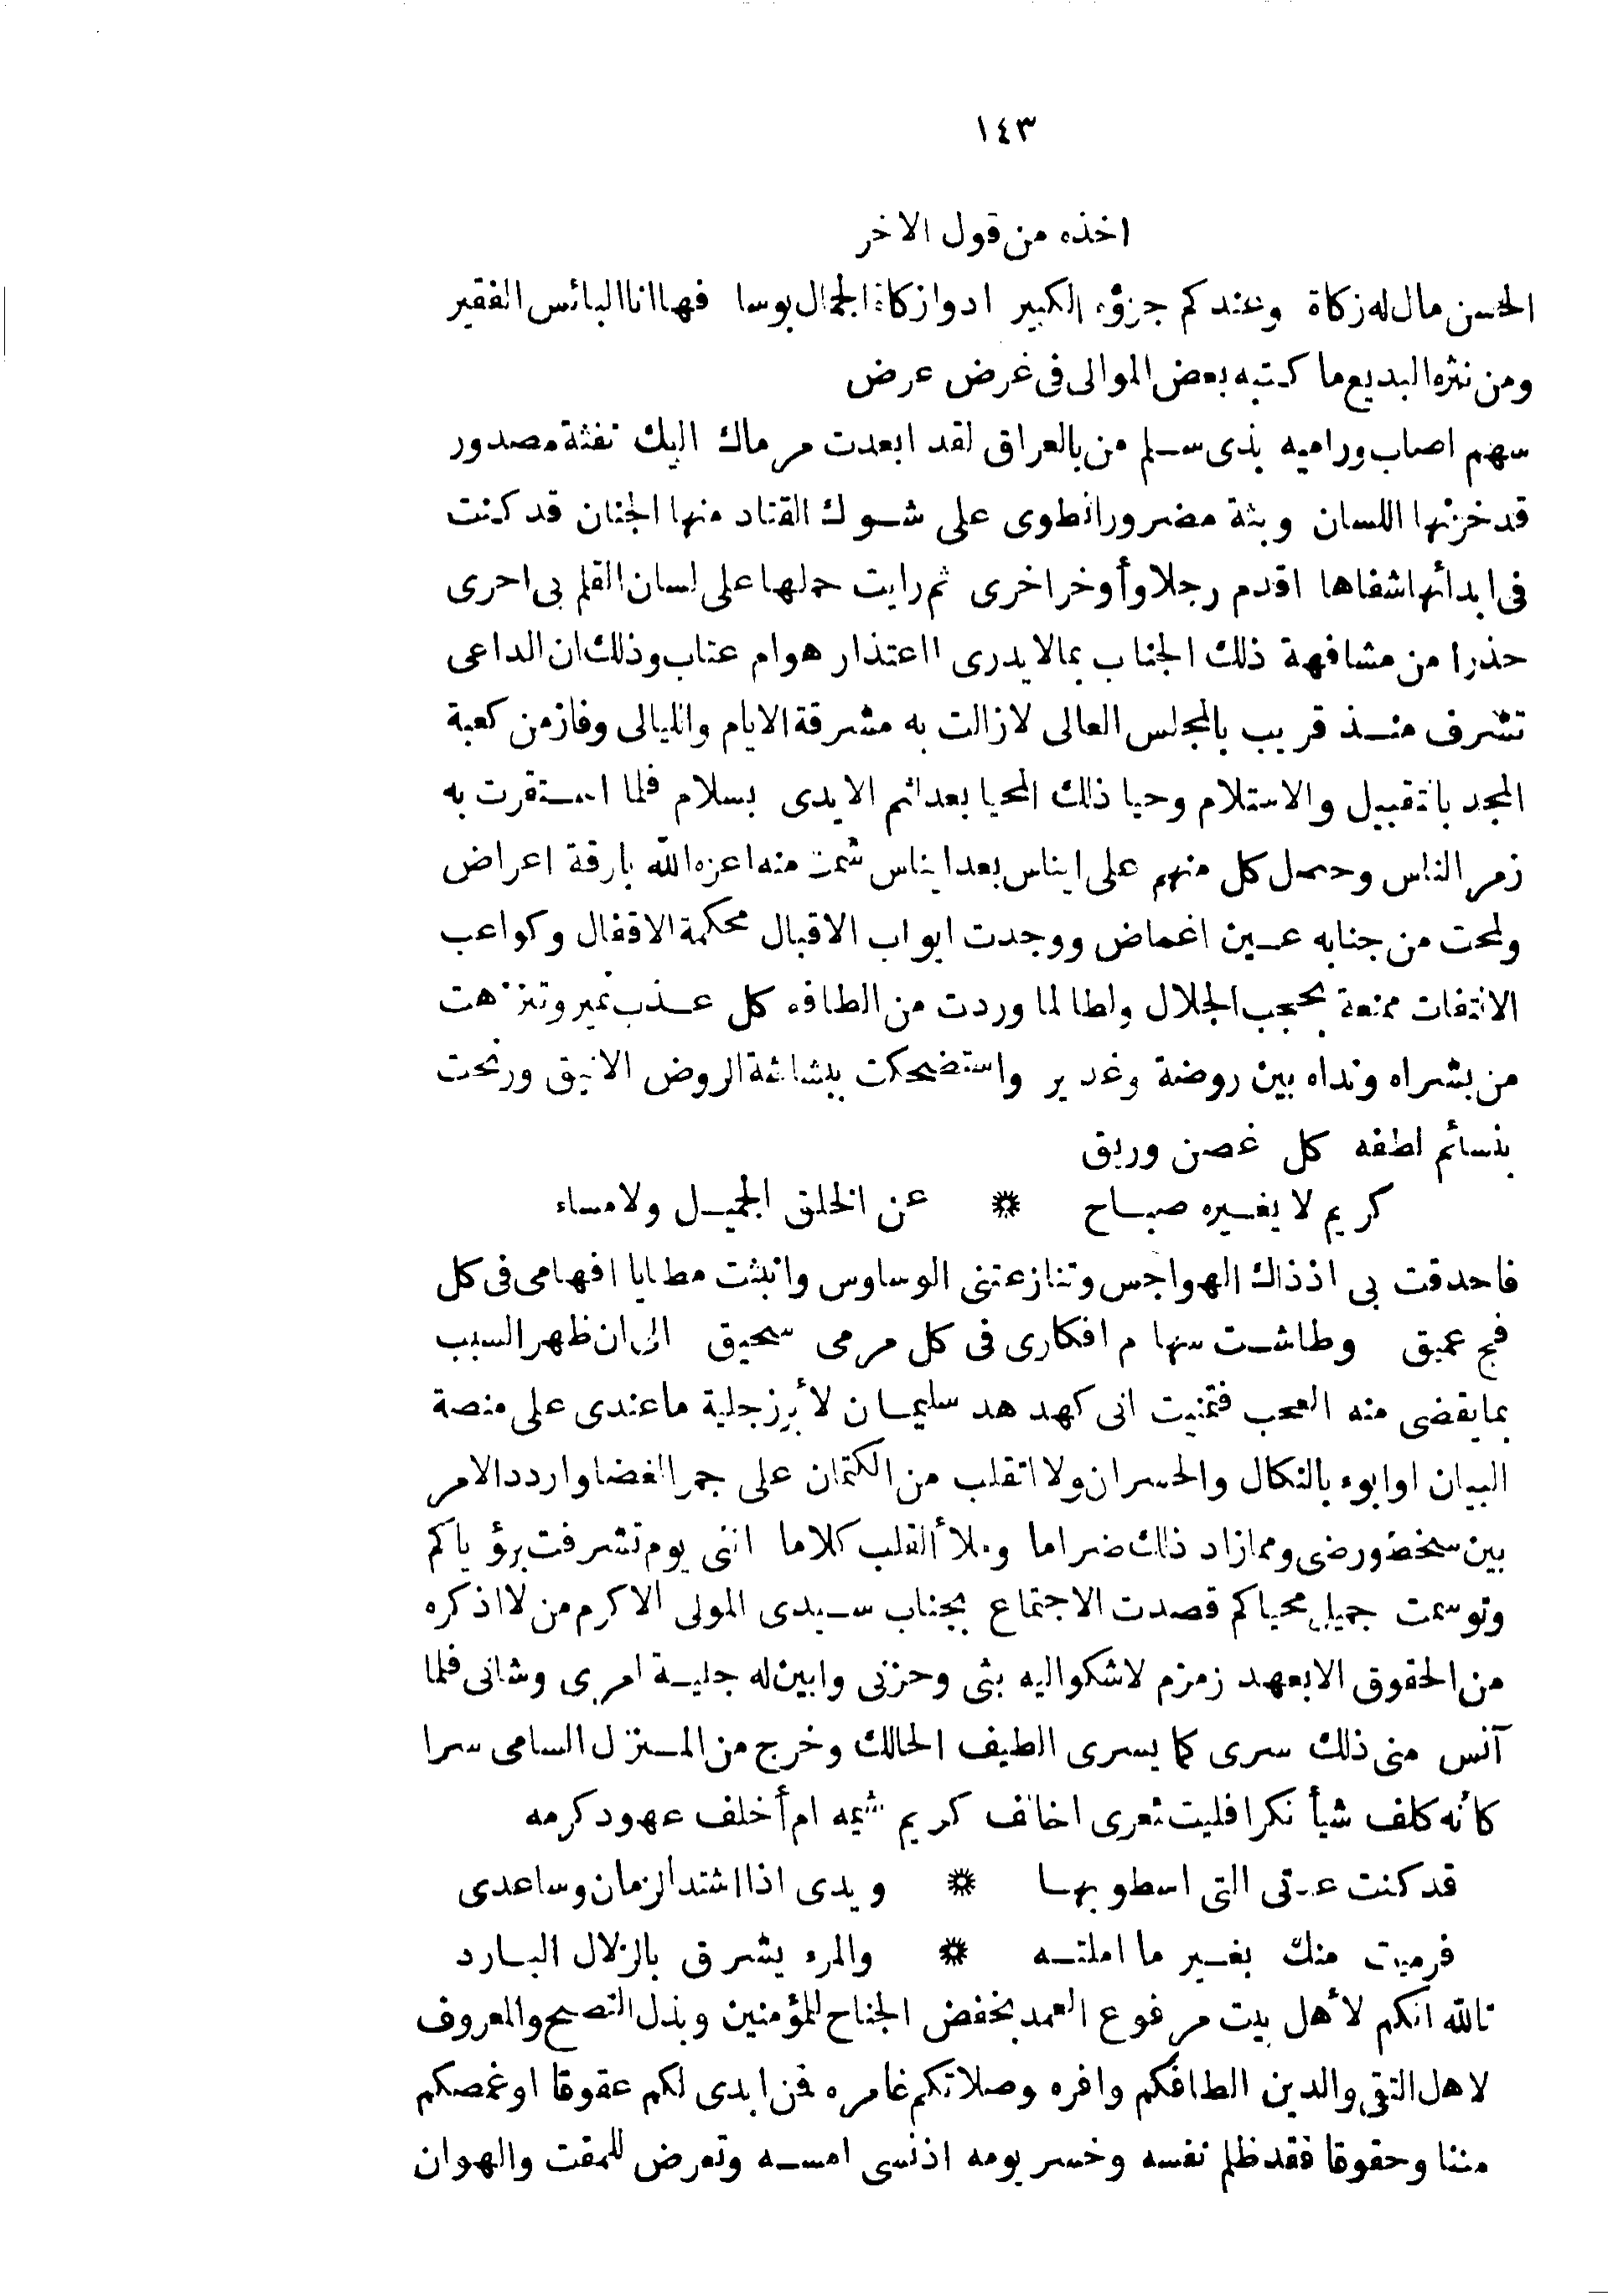 ١٤٣
اخذه من قول الاخر
الحسن مال له زكاة وعندكم جزؤه الكبير ادوا زكاة الجمال بوسا فها انا البائس الفقير
ومن نثره البديع ما كتبه بعض الموالى فى غرض عرض
سهم اصاب وراميه بذى سلم من بالعراق لقد ابعدت مرماك اليك نفثة مصدور
قد خزنها اللسان وبثة مضرور انطوى على شوك القتاد منها الجنان قد كنت
فى ابدائها شفاها اقدم رجلا وأوخر اخرى ثم رايت حملها على لسان القلم بى احرى
حذرا من مشافهة ذلك الجناب بما لا يدرى ااعتذار هو ام عتاب وذلك ان الداعى
تشرف منذ قريب بالمجلس العالى لا زالت به مشرقة الايام والليالى وفاز من كعبة
المجد بالتقبيل والاستلام وحيا ذلك المحيا بعد لثم الايدى بسلام فلما استقرت به
زمر الناس وحصل كل منهم على ايناس بعد ايناس شمت منه اعزه الله بارقة اعراض
ولمحت من جنابه عين اغماض ووجدت ابواب الاقبال محكمة الاقفال وكواعب
الالتفات ممنعة بحجب الجلال ولطالما وردت من الطافه كل عذب نمير وتنزهت
من بشراه ونداه بين روضة وغدير واستضحكت ببشاشة الروض الانيق ورنحت
بنسائم لطفه كل غصن وريق
كريم لا يغيره صباح * عن الخلق الجميل ولا مساء
فاحدقت بى اذ ذاك الهواجس وتنازعتنى الوساوس وانبثت مطايا افهامى فى كل
فج عميق وطاشت سهام افكارى فى كل مرمى سحيق الى ان ظهر السبب
بما يقضى منه العجب فتمنيت انى كهدهد سليمان لأبرز جلية ما عندى على منصة
البيان او ابوء بالنكال والخسران ولا اتقلب من الكتمان على جمر الغضا واردد الامر
بين سخط ورضى ومما زاد ذلك ضراما وملأ القلب كلاما اننى يوم تشرفت برؤياكم
وتوسمت جميل محياكم قصدت الاجتماع بجناب سيدى المولى الاكرم من لا اذكره
من الحقوق الا بعهد زمزم لاشكو اليه بثى وحزنى وابين له جلية امرى وشانى فلما
آنس منى ذلك سرى كما يسرى الطيف الحالك وخرج من المنزل السامى سرا
كأنه كلف شيأ نكرا فليت شعرى اخالف كريم شيمه ام أخلف عهود كرمه
قد كنت عدتى التى اسطو بها * ويدى اذا اشتد الزمان وساعدى
فرميت منك بغير ما املته * والمرء يشرق بالزلال البارد
تالله انكم لأهل بيت مرفوع العمد بخفض الجناح للمؤمنين وبذل النصح والمعروف
لاهل التقى والدين الطافكم وافره وصلاتكم غامره فمن ابدى لكم عقوقا او غمصكم
مننا وحقوقا فقد ظلم نفسه وخسر يومه اذ نسى امسه وتعرض للمقت والهوان